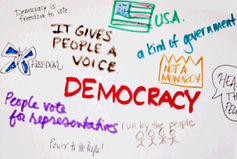 Democracy is
freedom to vote.
U.S.A.
IT GIVES
PEOPLE A
VOICE.
a kind of government
FREEDOM
NOT A
MONARCHY
DEMOCRACY
People vote
for representatives
run by the people
Power to the People!